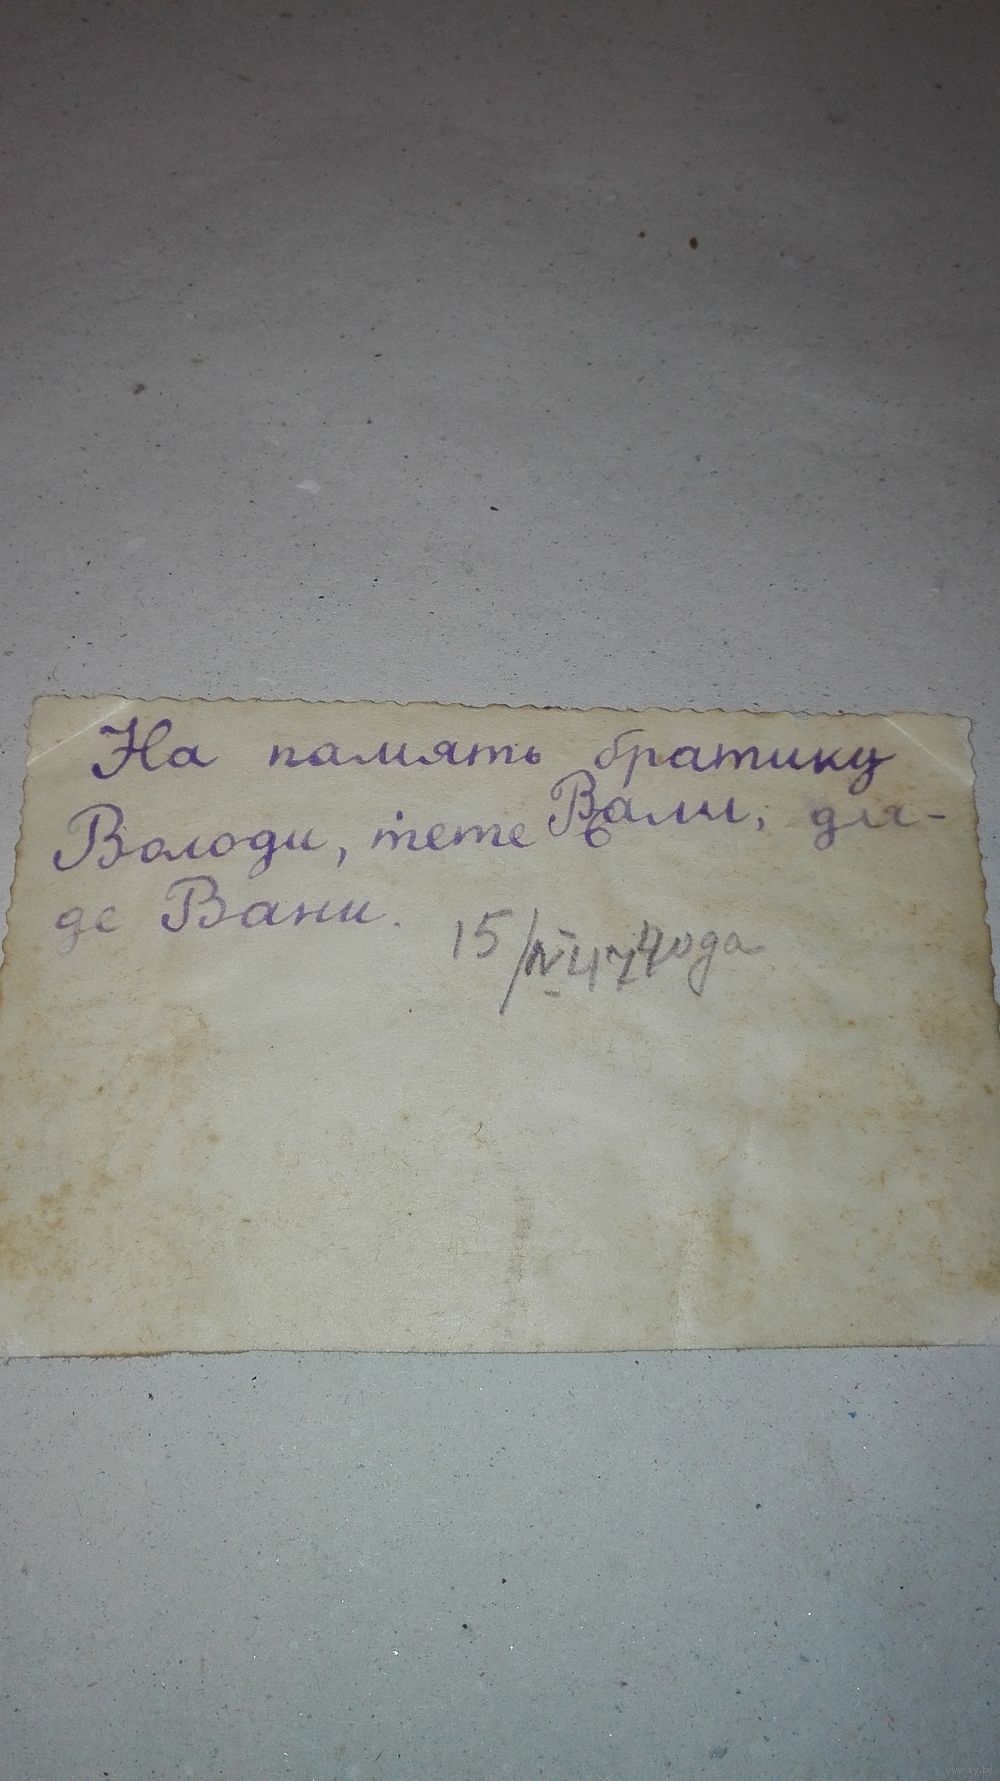 На память братику
Володи, тете Вали, дя-
де Вани.
15/IV 47 года
www.ay.by